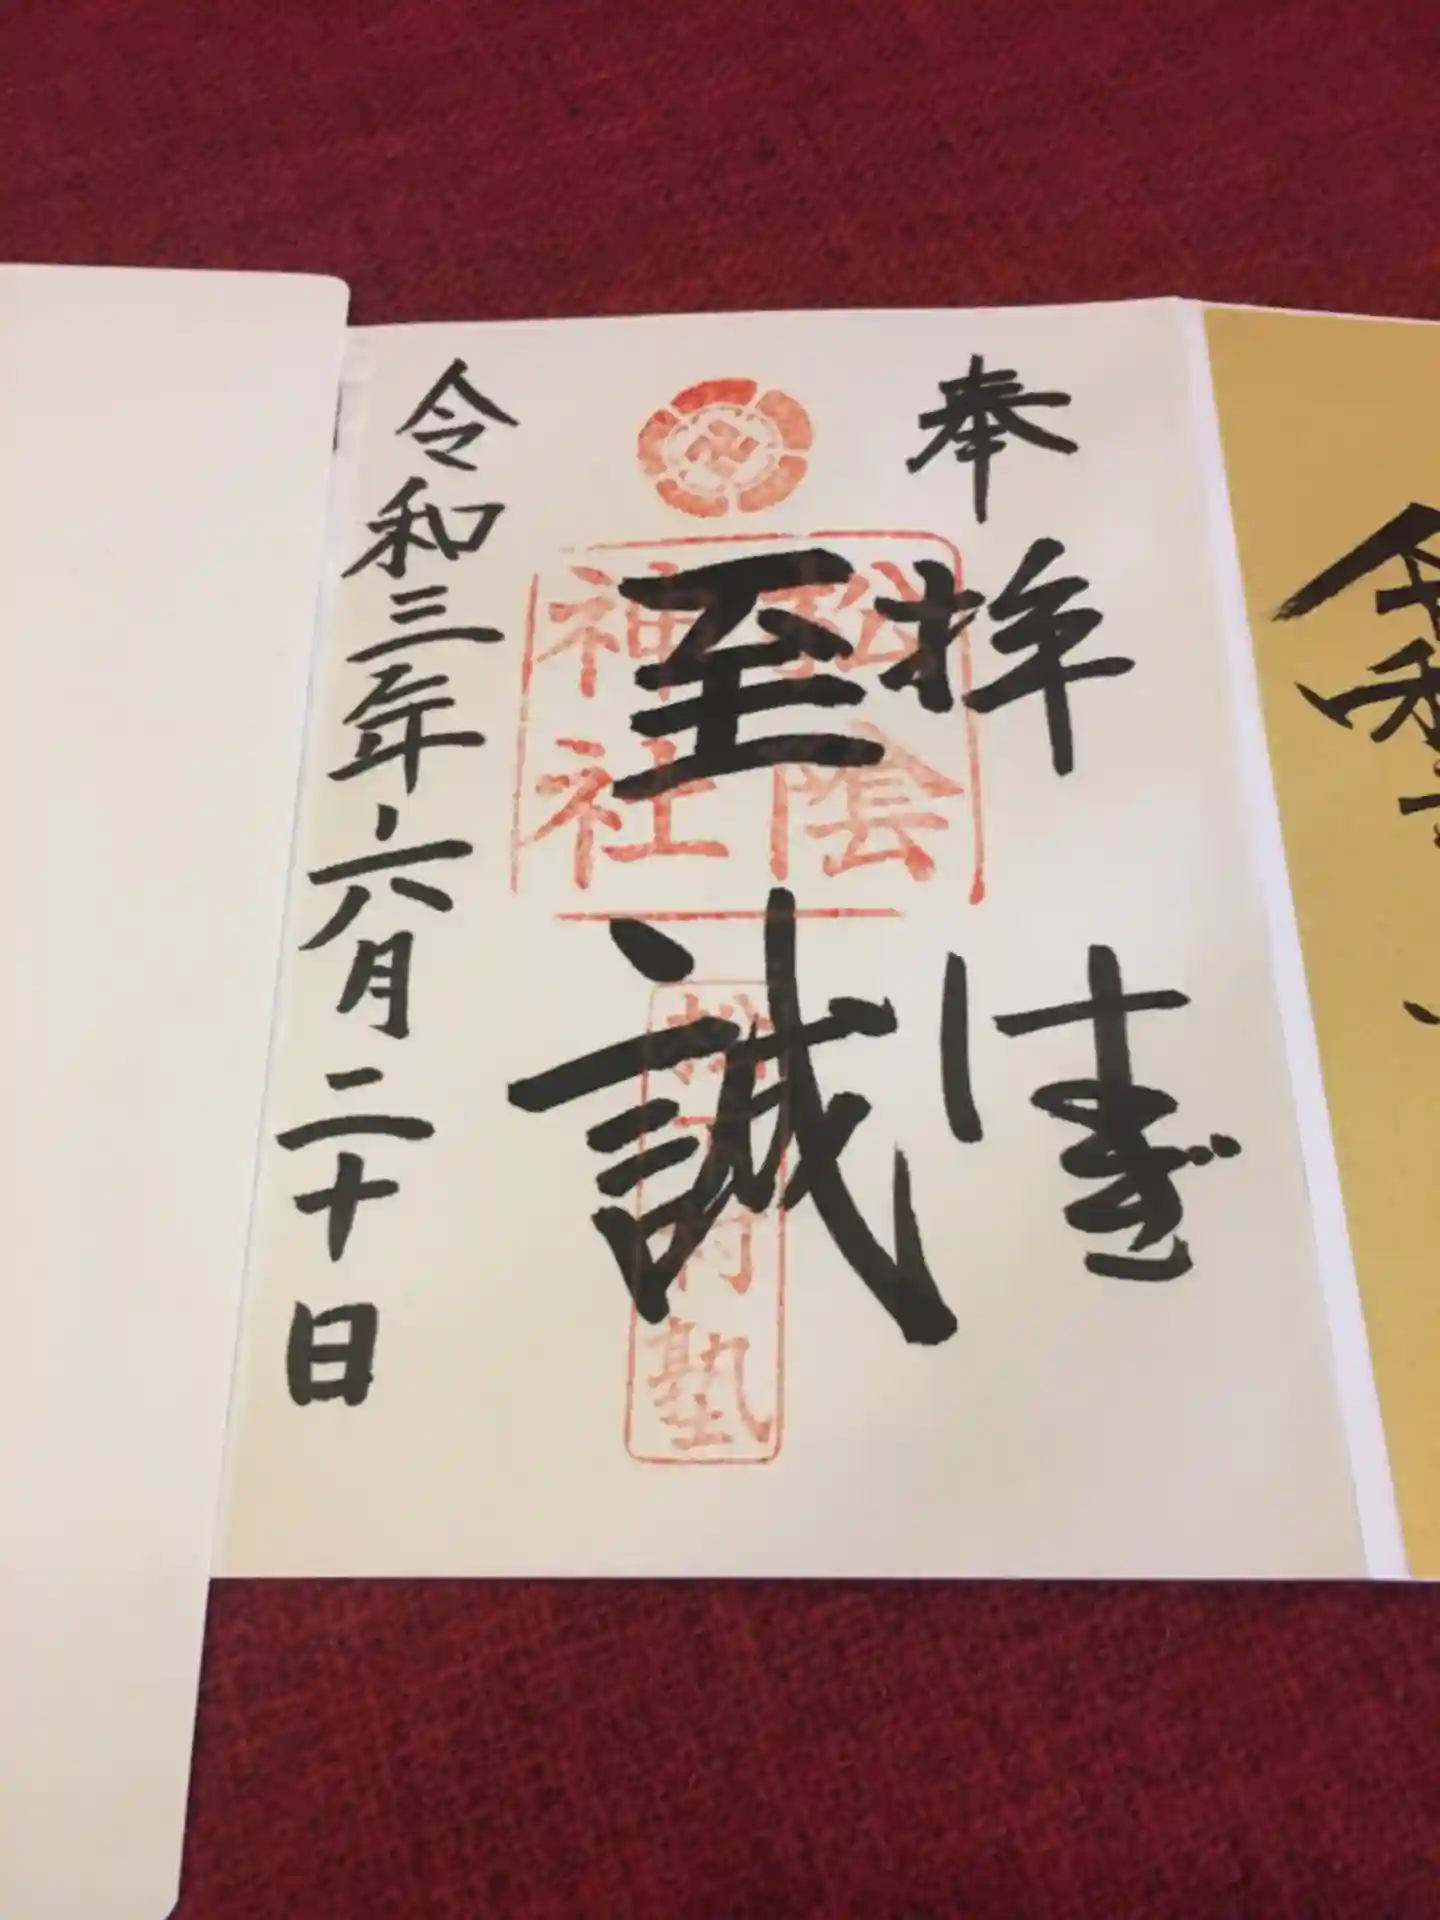 奉拝
はぎ
至誠
松陰
神社
松下村塾
令和三年六月二十日
令和